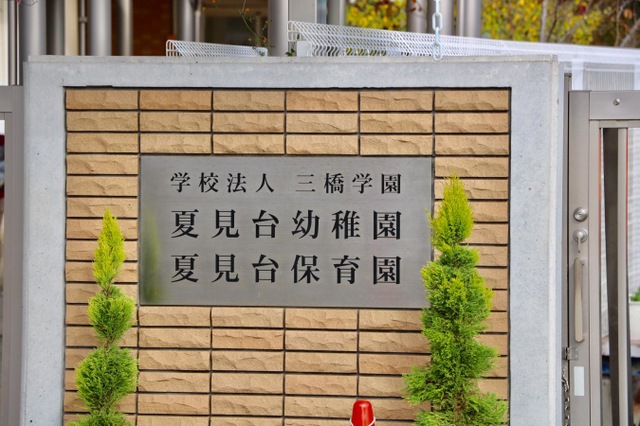 学校法人 三橋学園
夏見台幼稚園
夏見台保育園